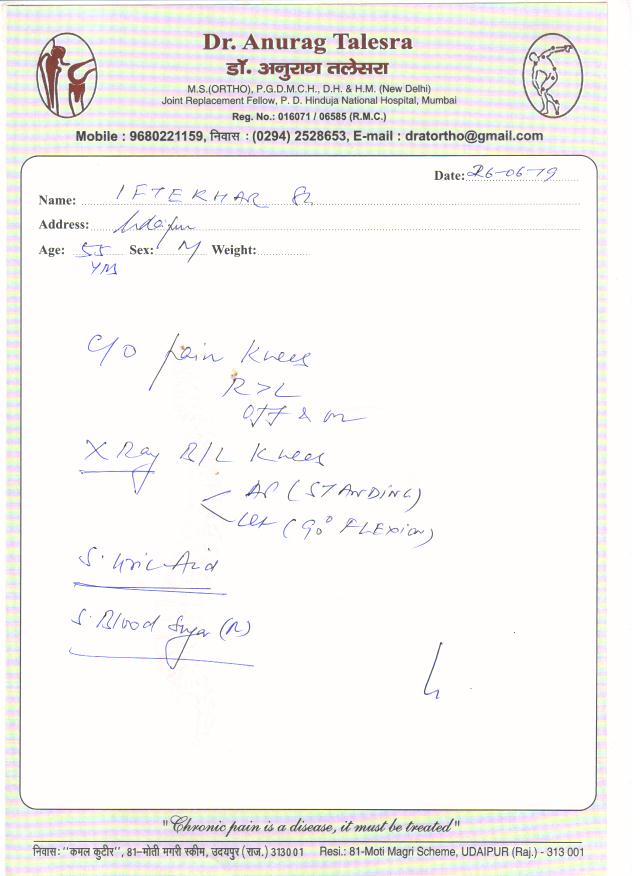 Dr. Anurag Talesra
डॉ. अनुराग तलेसरा
M.S.(ORTHO), P.G.D.M.C.H., D.H. & H.M. (New Delhi)
Joint Replacement Fellow, P. D. Hinduja National Hospital, Mumbai
Reg. No.: 016071 / 06585 (R.M.C.)
Mobile : 9680221159, निवास : (0294) 2528653, E-mail : dratortho@gmail.com
Date: 26-06-19
Name: IFTEKHAR
Address: Udaipur
Age: 55 Sex: M Weight:
YRS
C/O pain Knees
R>L
Off & on
X Ray B/L Knees
AP (STANDING)
Lat (90° FLEXION)
S. Uric Acid
S. Blood Sugar (R)
"Chronic pain is a disease, it must be treated"
निवास: "कमल कुटीर", 81-मोती मगरी स्कीम, उदयपुर (राज.) 313001 Resi.: 81-Moti Magri Scheme, UDAIPUR (Raj.) - 313 001